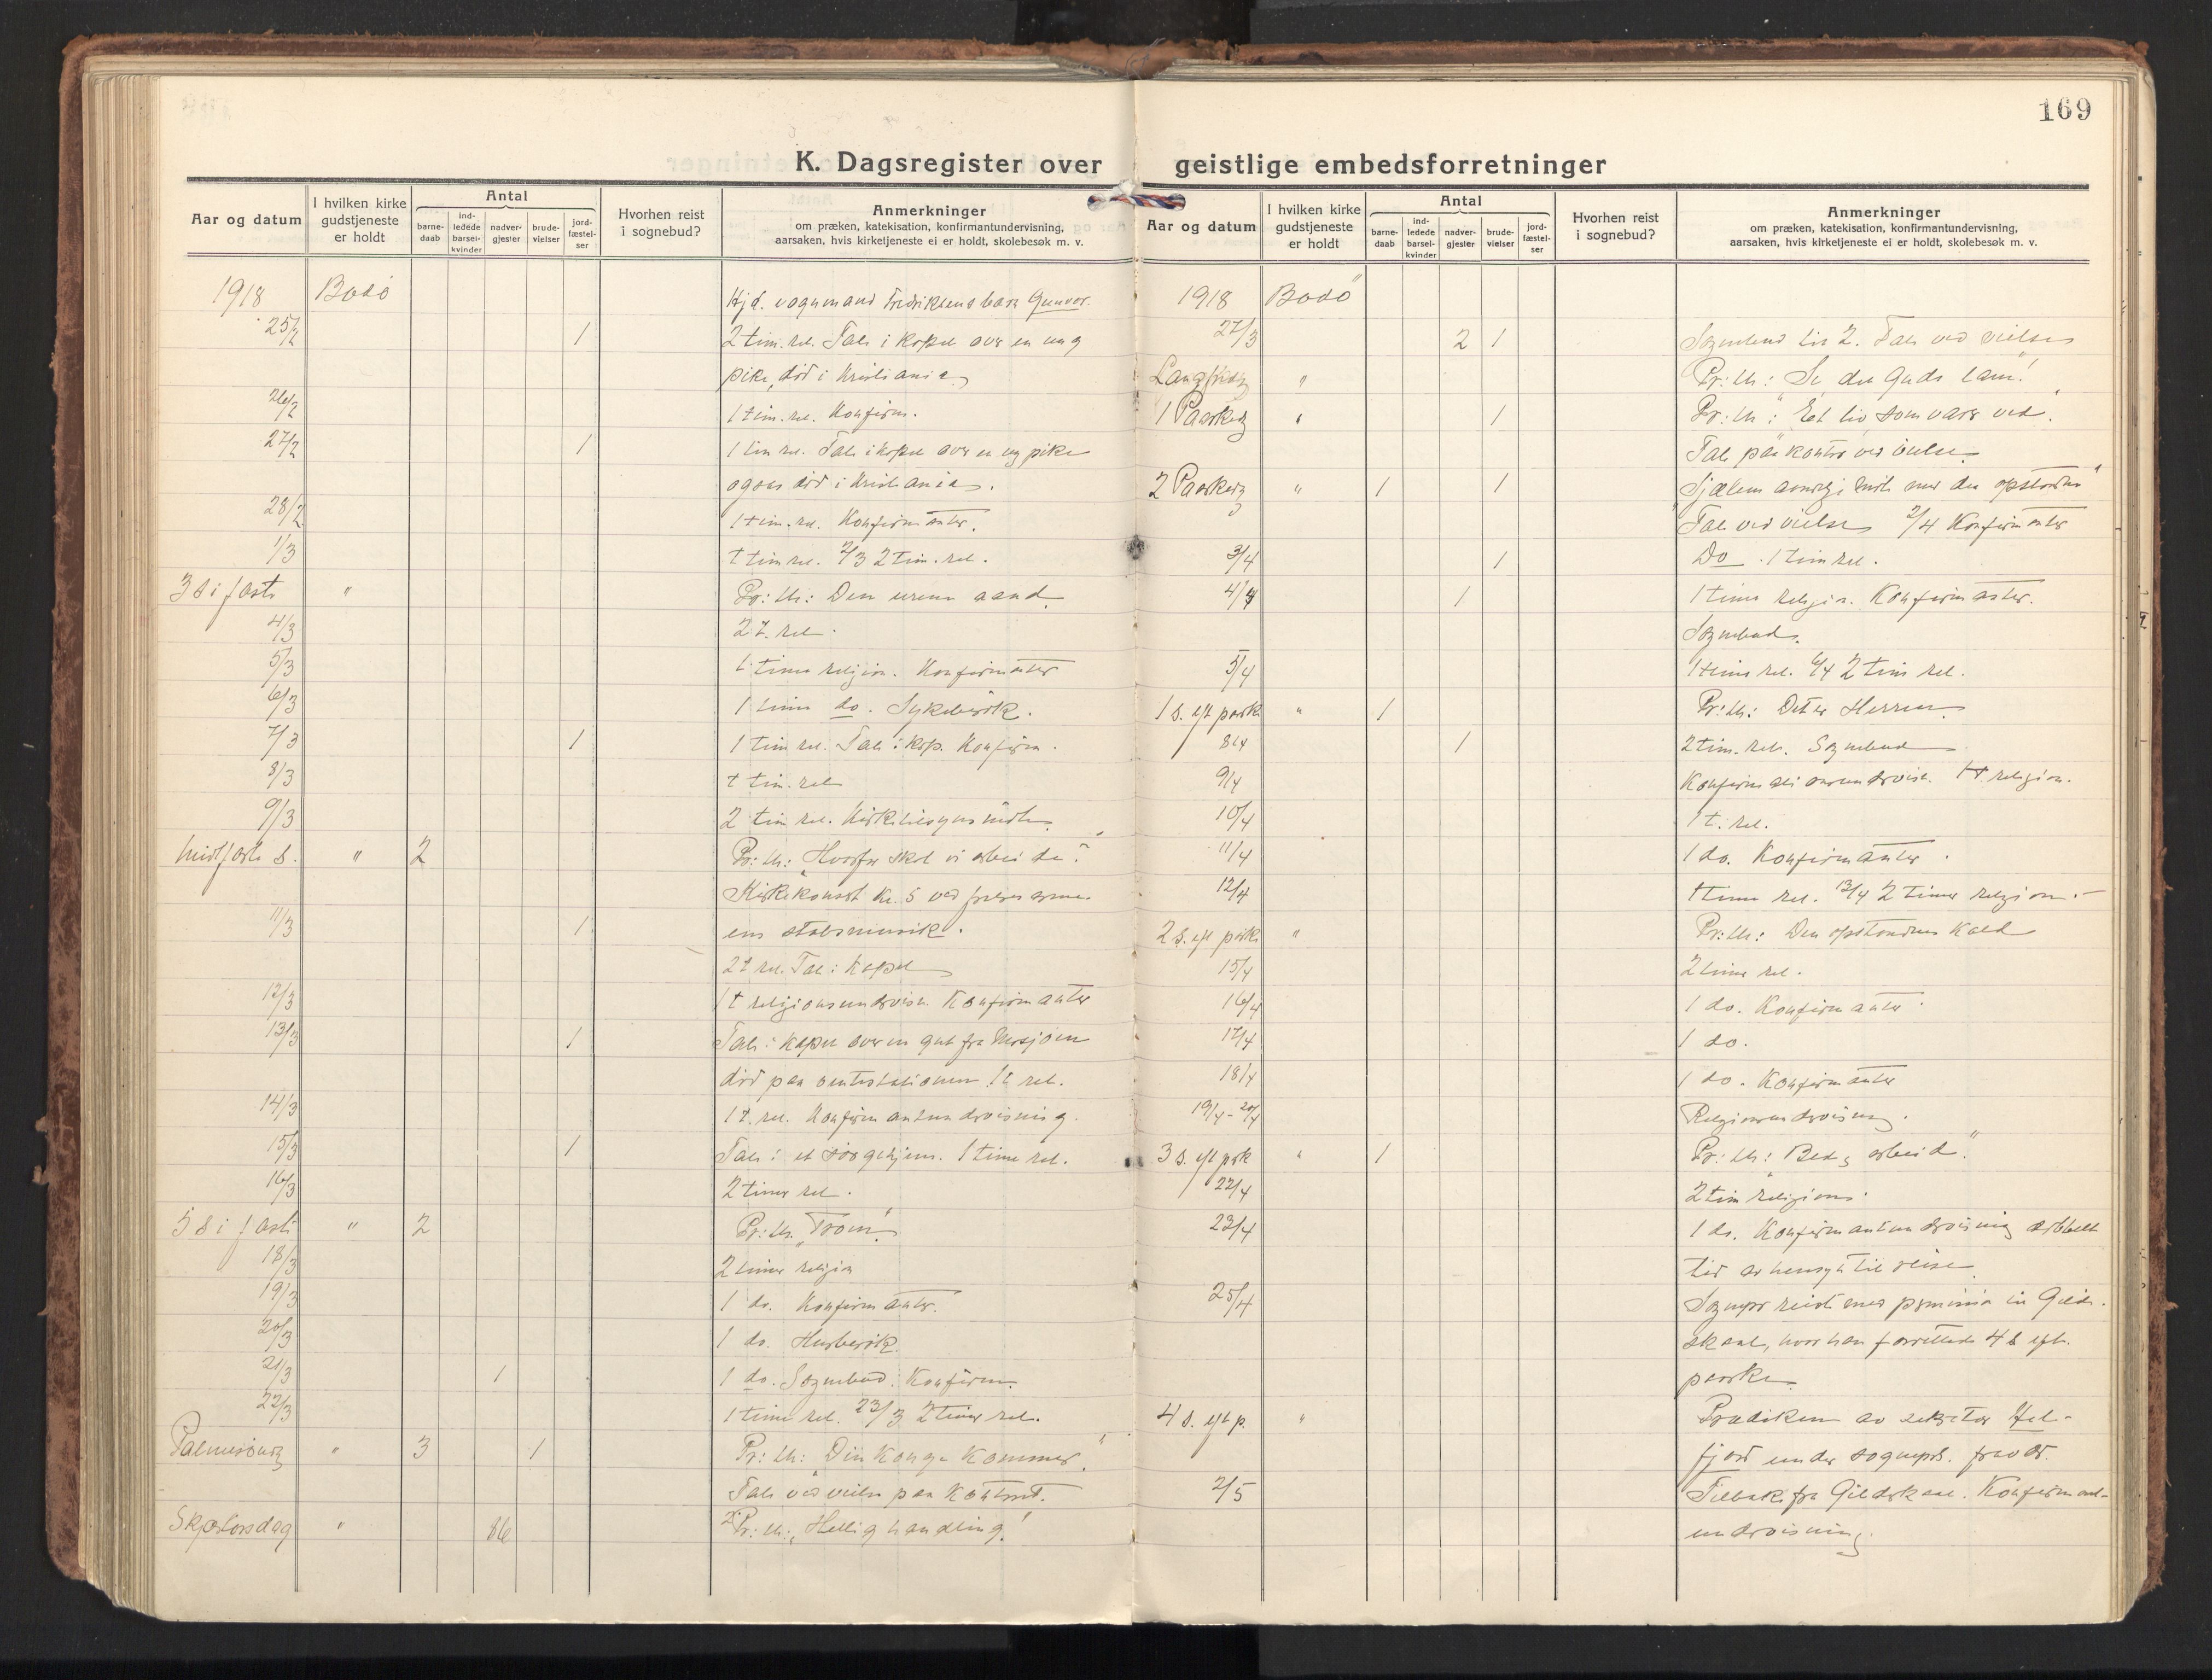 169
K. Dagsregister over geistlige embedsforretninger
Aar og datum
I hvilken kirke gudstjeneste er holdt
Antal
barne-daab
ind-ledede barsel-kvinder
nadver-gjester
brude-vielser
jord-fæstel-ser
Hvorhen reist i sognebud?
Anmerkninger
om præken, katekisation, konfirmantundervisning,
aarsaken, hvis kirketjeneste ei er holdt, skolebesøk m. v.
1918 Bodö Hjd. vognmand Fredriksens barn Gunvor.
25/2 1 2 tim. rel. Tale i kapel over en ung
pike, död i Kristiania
26/2 1 tim. rel. Konfirm.
27/2 1 1 tim rel. Tale i kapel over en ung pike
ogsaa död i Kristiania.
28/2 1 tim. rel. Konfirmanter.
1/3 1 tim rel. 2/3 2 tim. rel.
3 s i faste " Pr: th: Den urene aand
4/3 2 t. rel.
5/3 1 time religion. Konfirmanter
6/3 1 time do. Sykebesök.
7/3 1 1 tim rel. Tale i kap. Konfirm.
8/3 1 tim. rel
9/3 2 tim rel. Kirketilsynsmöte
Midtfaste s. " 2 Pr: th: "Hvorfor skal vi arbeide?"
Kirkekonsert kl. 5 ved frelsesarme-
11/3 1 ens stabsmusik.
2 t rel. Tale i Kapel
12/3 1 t religionsundervisn. Konfirmanter
13/3 1 Tale i kapel over en gut fra Mosjöen
död paa 1 t. rel.
14/3 1 t. rel. Konfirmantundervisning.
15/3 1 Tale i et sörgehjem. 1 time rel.
16/3 2 timer rel.
5 s i faste " 2 Pr: th. "Troen"
18/3 2 timer religion
19/3 1 do. Konfirmanter.
20/3 1 do. Husbesök.
21/3 1 1 do. Sognebud. Konfirm.
22/3 1 time rel. 23/3 2 timer rel.
Palmesöndg " 3 1 Pr: th: "Din Konge kommer."
Tale ved vielse paa Kontoret.
Skjærtorsdag " 86 Pr: th: "Hellig handling!"
Aar og datum
I hvilken kirke gudstjeneste er holdt
Antal
barne-daab
ind-ledede barsel-kvinder
nadver-gjester
brude-vielser
jord-fæstel-ser
Hvorhen reist i sognebud?
Anmerkninger
om præken, katekisation, konfirmantundervisning,
aarsaken, hvis kirketjeneste ei er holdt, skolebesøk m. v.
1918 Bodö
27/3 2 1 Sognebud til 2. Tale ved vielse
Langfredg " Pr: th: "Se det Guds lam!"
1 Paaskedg " 1 Pr: th: "Et liv som varer ved".
Tale paa kontor ved vielse
2 Paaskedg " 1 1 Sjælens möte med den opstandne"
Tale ved vielse 2/4 Konfirmanter
3/4 1 Do . 1 tim rel.
4/4 1 1 time religion. Konfirmanter.
Sognebud.
5/4 1 time rel. 6/4 2 tim rel.
1 s. eft paask " 1 Pr: th: Det er Herren
8/4 1 2 tim. rel. Sognebud
9/4 1 t. religion.
10/4 1 t. rel.
11/4 1 do. Konfirmanter.
12/4 1 time rel. 13/4 2 timer religion. -
2 s. eft paske " Pr: th: Den opstandnes kald
15/4 2 timer rel.
16/4 1 do. Konfirmanter
17/4 1 do.
18/4 1 do. Konfirmanter
19/4 - 20/4 Religionsundervisning.
3 s. eft psk " 1 Pr: th: "Bed og arbeid".
22/4 2 tim religion.
23/4 1 do. Konfirmantundervisning dobbelt
tid av hensyn til reise
25/4 Sognepr reiste med permission til Gilde-
skaal, hvor han forrettede 4 s eft.
paaske
4 s. eft p. " Prædiken av sekretær Hel-
fjord under sognepr. fravær.
2/5 Tilbake fra Gildeskaal. Konfirmant-
undervisning